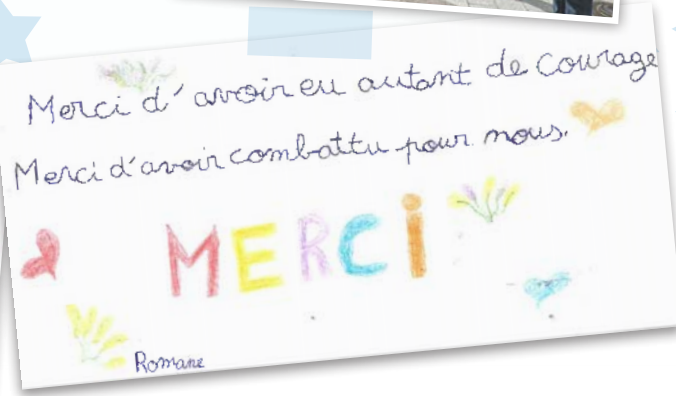 Merci d'avoir eu autant de courage
Merci d'avoir combattu pour nous.
MERCI
Romane